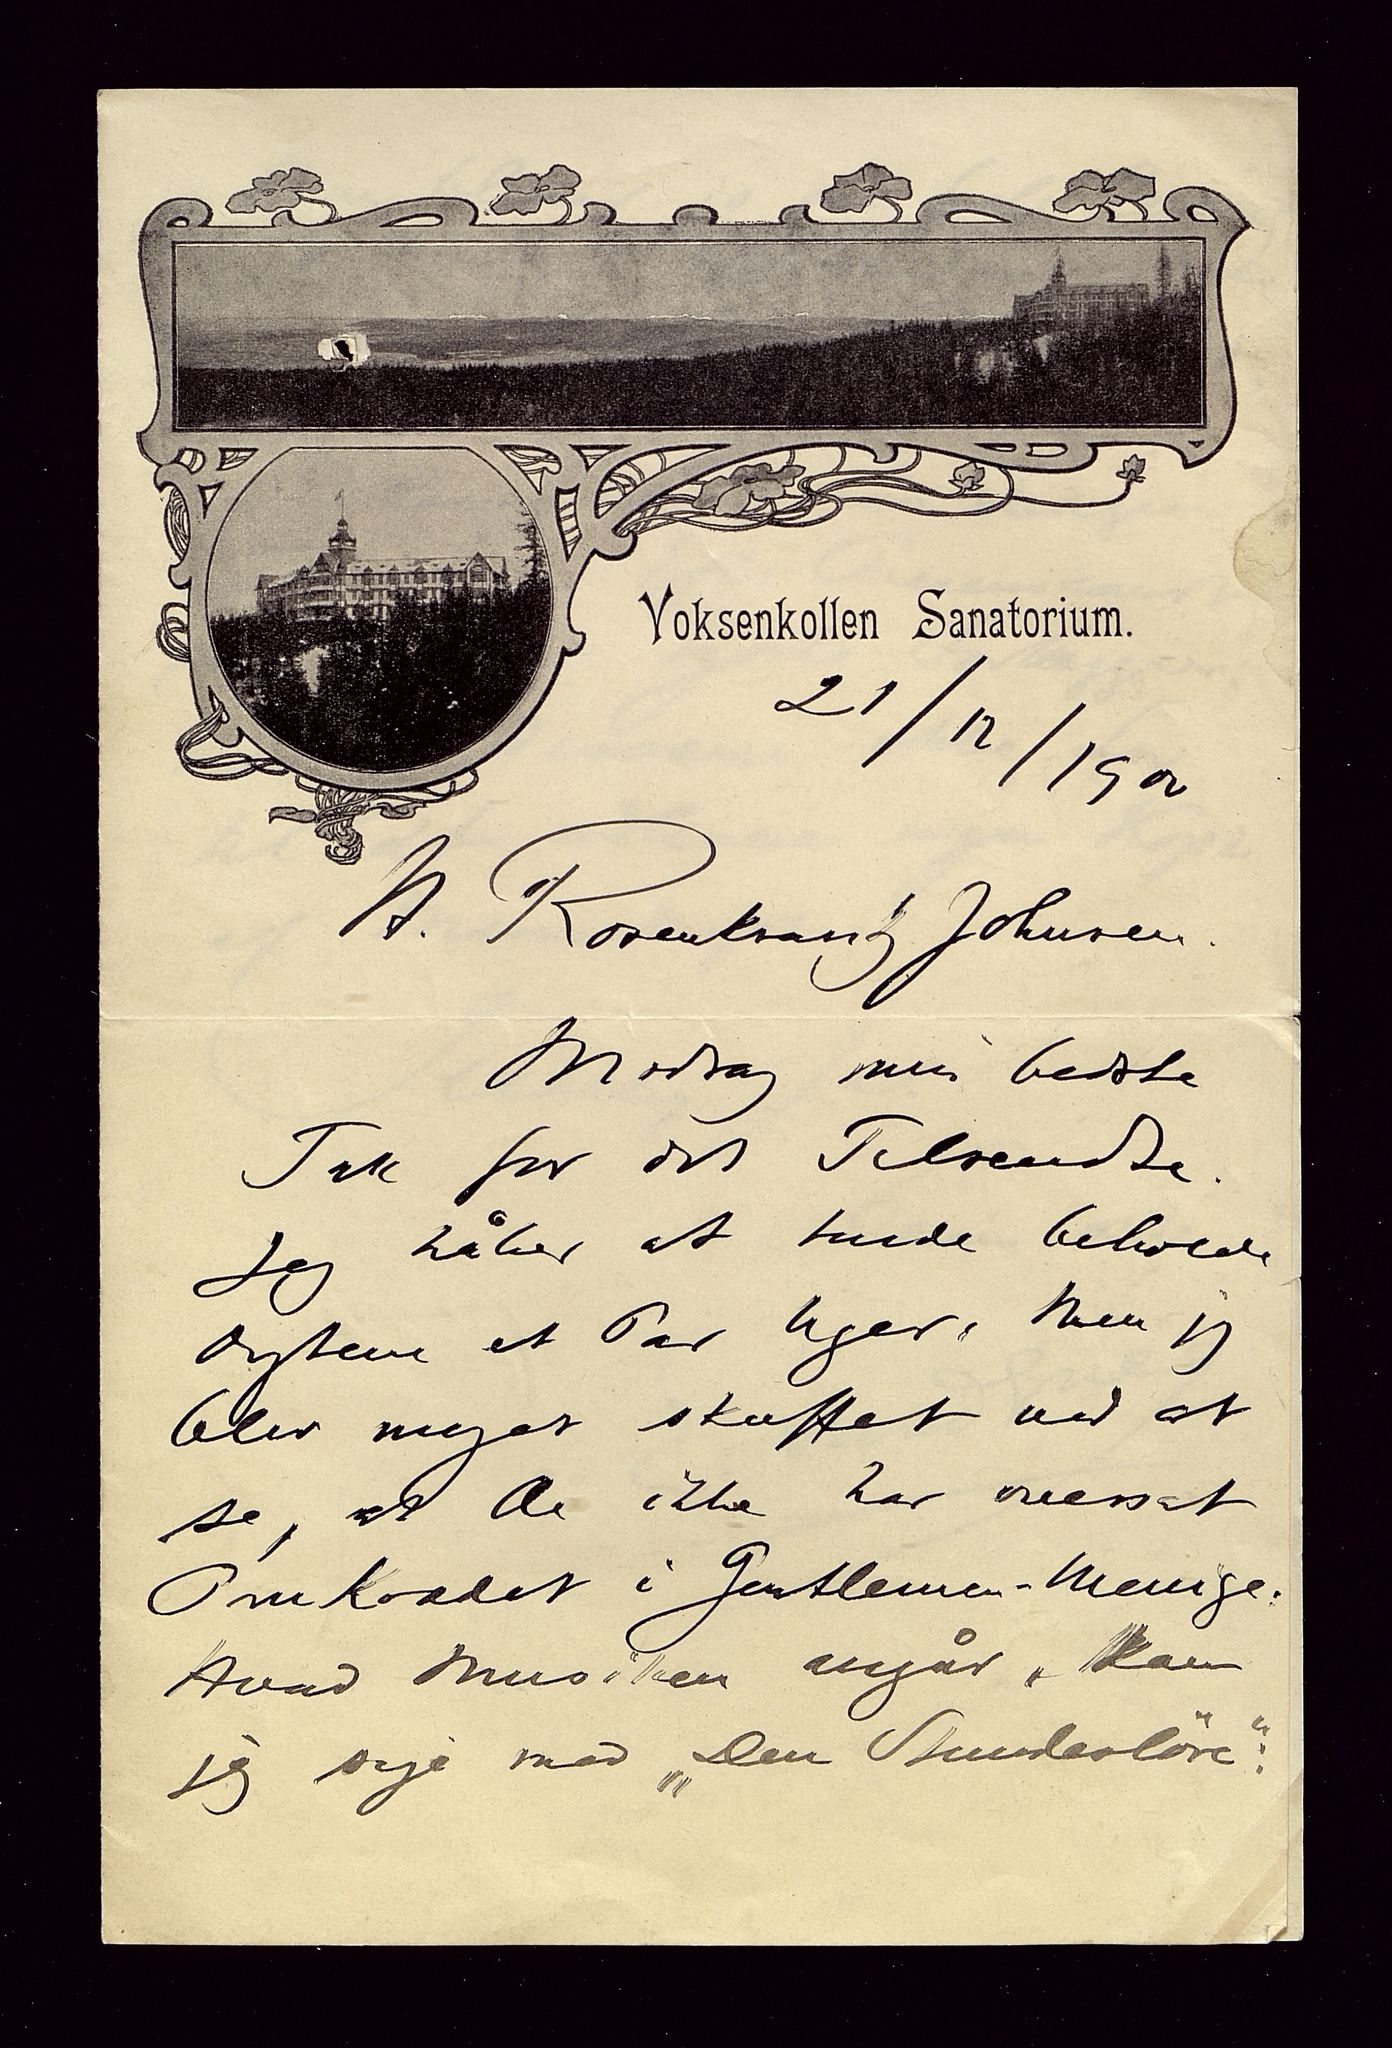 Voksenkollen Sanatorium.
21/12/1900
H. Rosenkrantz Johnsen.
Modtag min bedste
Tak for det Tilsendte.
Jeg håber at turde beholde
et Par Uger. Men jeg
blev meget skuffet ved at
se, at De ikke har oversat
Omkvædet i Gentlemen-Menige.
Hvad Musiken angår, kan
jeg sige med „Den Stundesløse“: